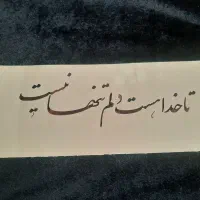 تا خدا هست دلم تنها نیست